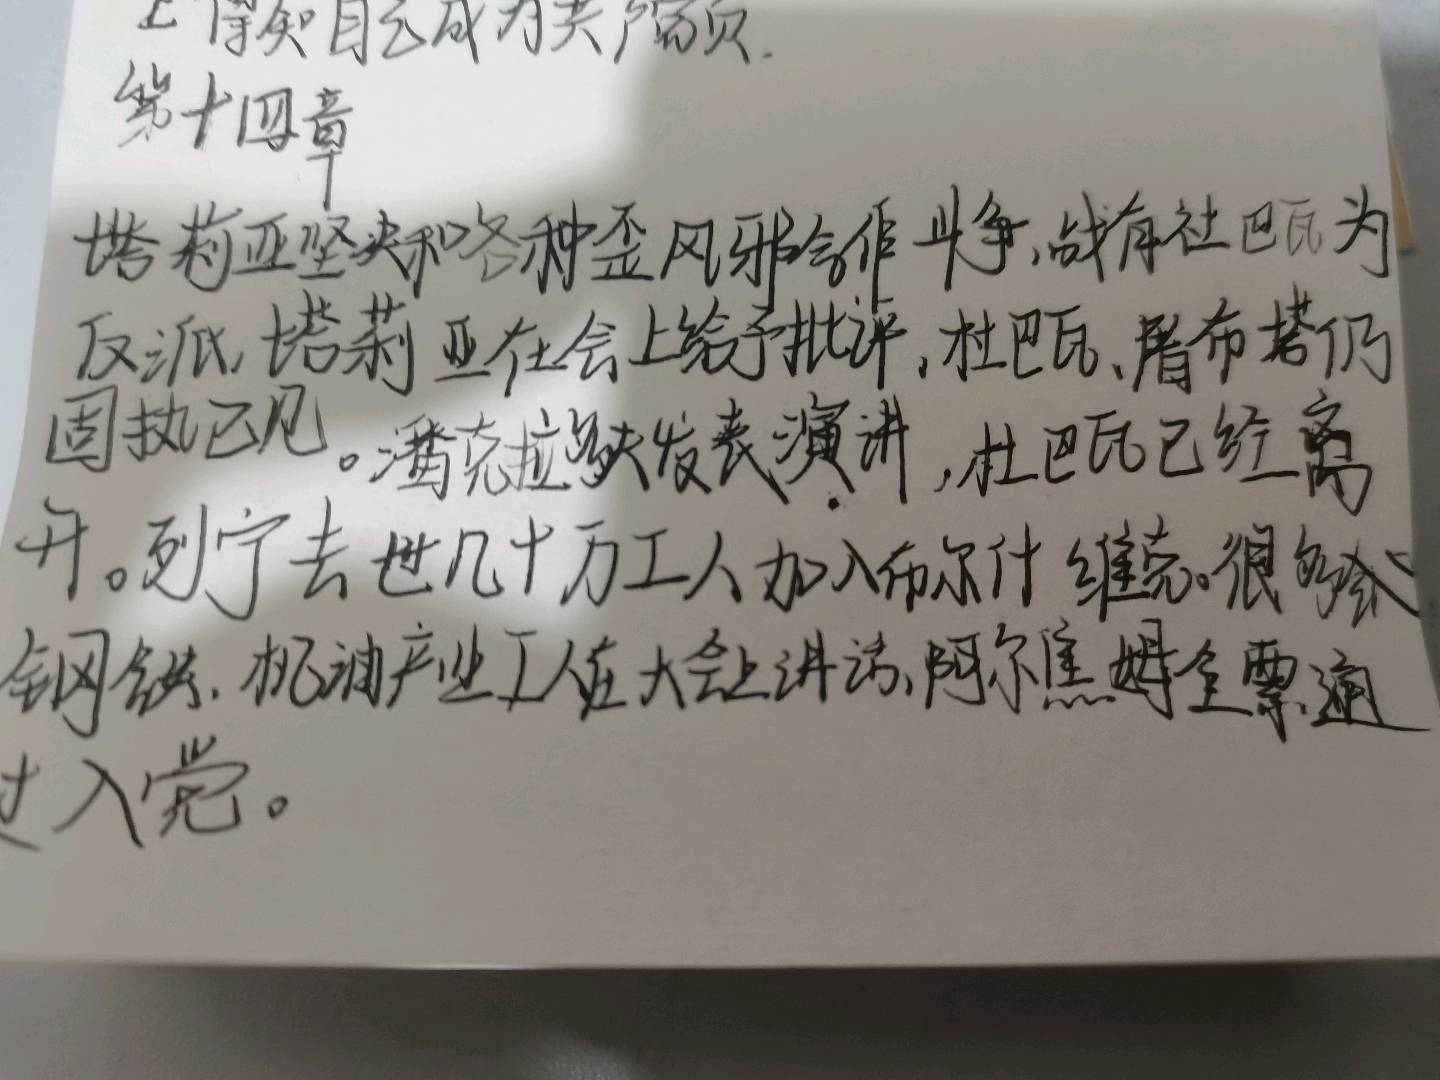 上得知自己成为共产党员.
第十四章
塔莉亚坚决和各种歪风邪会作斗争,战友杜巴瓦为
反派,塔莉亚在会上给予批评,杜巴瓦、屠布塔仍
固执己见。潘克拉多夫发表演讲,杜巴瓦已经离
开。列宁去世几十万工人加入布尔什维克。很多
钢铁、机油产业工人在大会上讲话,阿尔焦姆全票通
过入党。